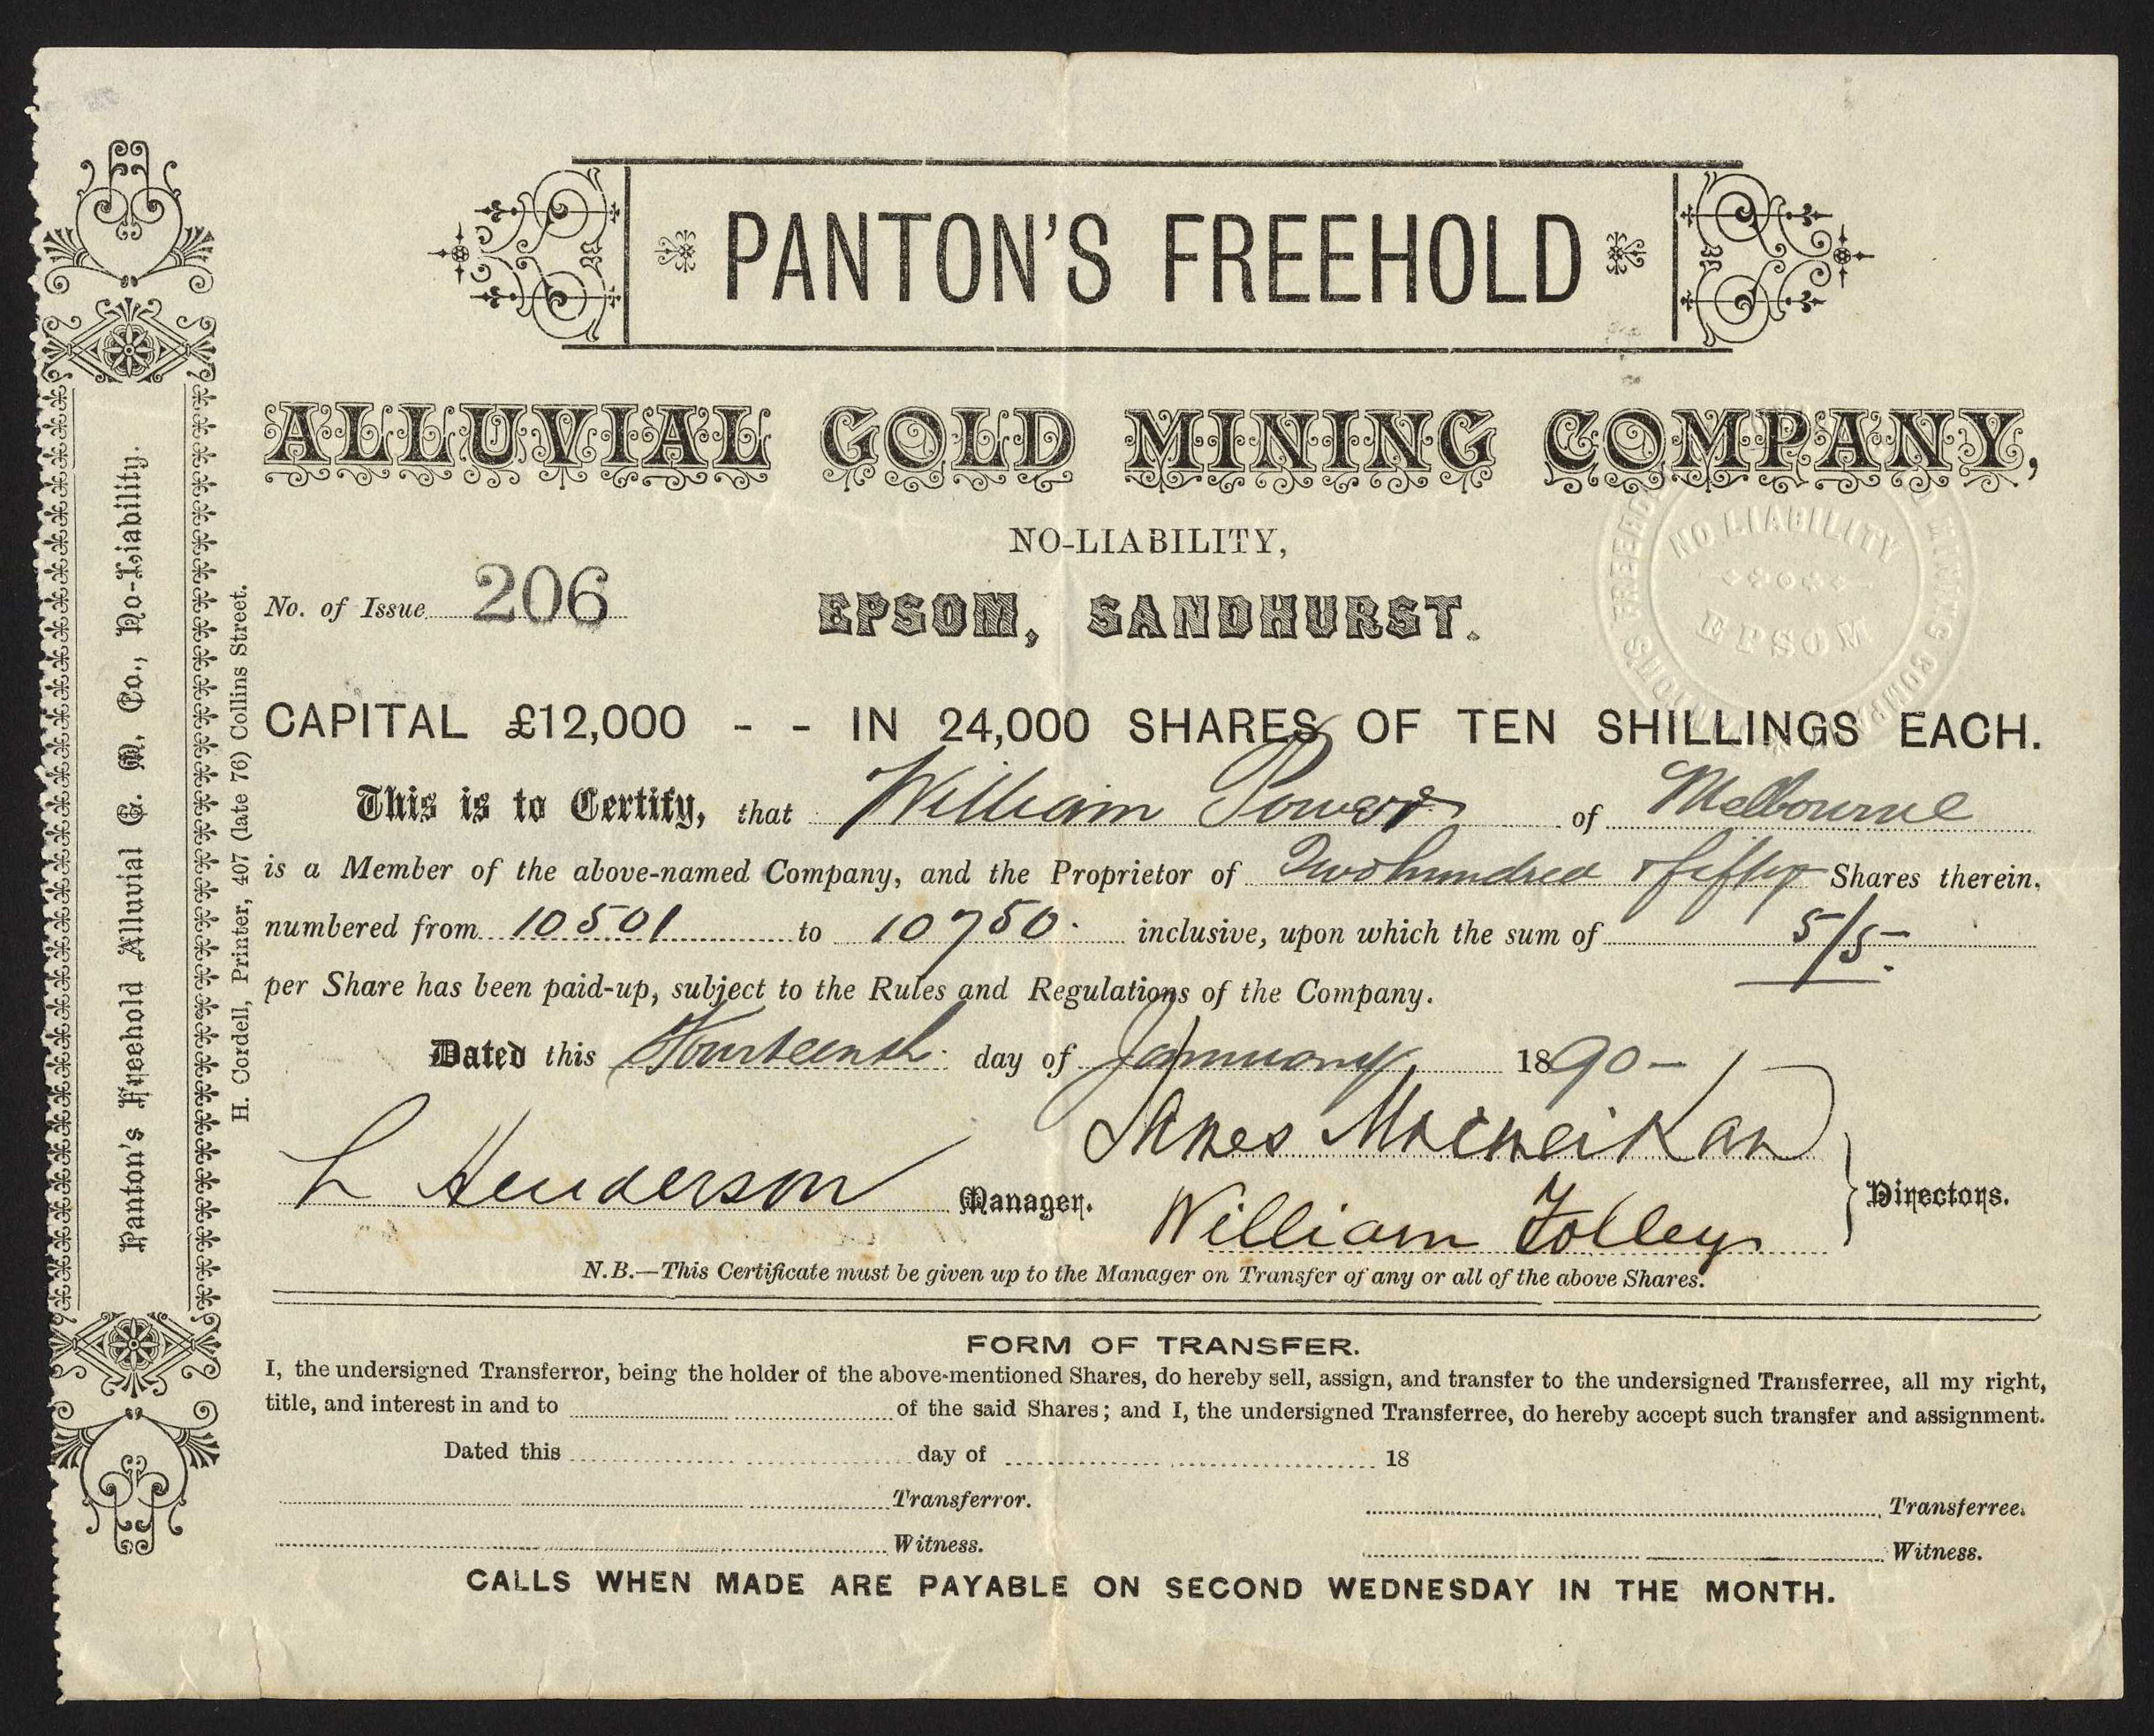 PANTON'S FREEHOLD
ALLUVIAL GOLD MINING COMPANY,
NO-LIABILITY,
No. of Issue 206
EPSOM, SANDHURST.
PANTON'S FREEHOLD MINING COMPANY
NO LIABILITY
EPSOM
CAPITAL £12,000 - - IN 24,000 SHARES OF TEN SHILLINGS EACH.
This is to Certify, that William Power of Melbourne
is a Member of the above-named Company, and the Proprietor of Two hundred & fifty Shares therein,
numbered from 10501 to 10750. inclusive, upon which the sum of 5/5-
per Share has been paid-up, subject to the Rules and Regulations of the Company.
Dated this Fourteenth day of January 1890-
L Henderson Manager.
James Macmeikan
William Folley
Directors.
N.B.—This Certificate must be given up to the Manager on Transfer of any or all of the above Shares.
FORM OF TRANSFER.
I, the undersigned Transferror, being the holder of the above-mentioned Shares, do hereby sell, assign, and transfer to the undersigned Transferree, all my right,
title, and interest in and to of the said Shares; and I, the undersigned Transferree, do hereby accept such transfer and assignment.
Dated this day of 18
Transferror. Transferree.
Witness. Witness.
CALLS WHEN MADE ARE PAYABLE ON SECOND WEDNESDAY IN THE MONTH.
Panton's Freehold Alluvial G. M. Co., No-Liability.
H. Cordell, Printer, 407 (late 76) Collins Street.